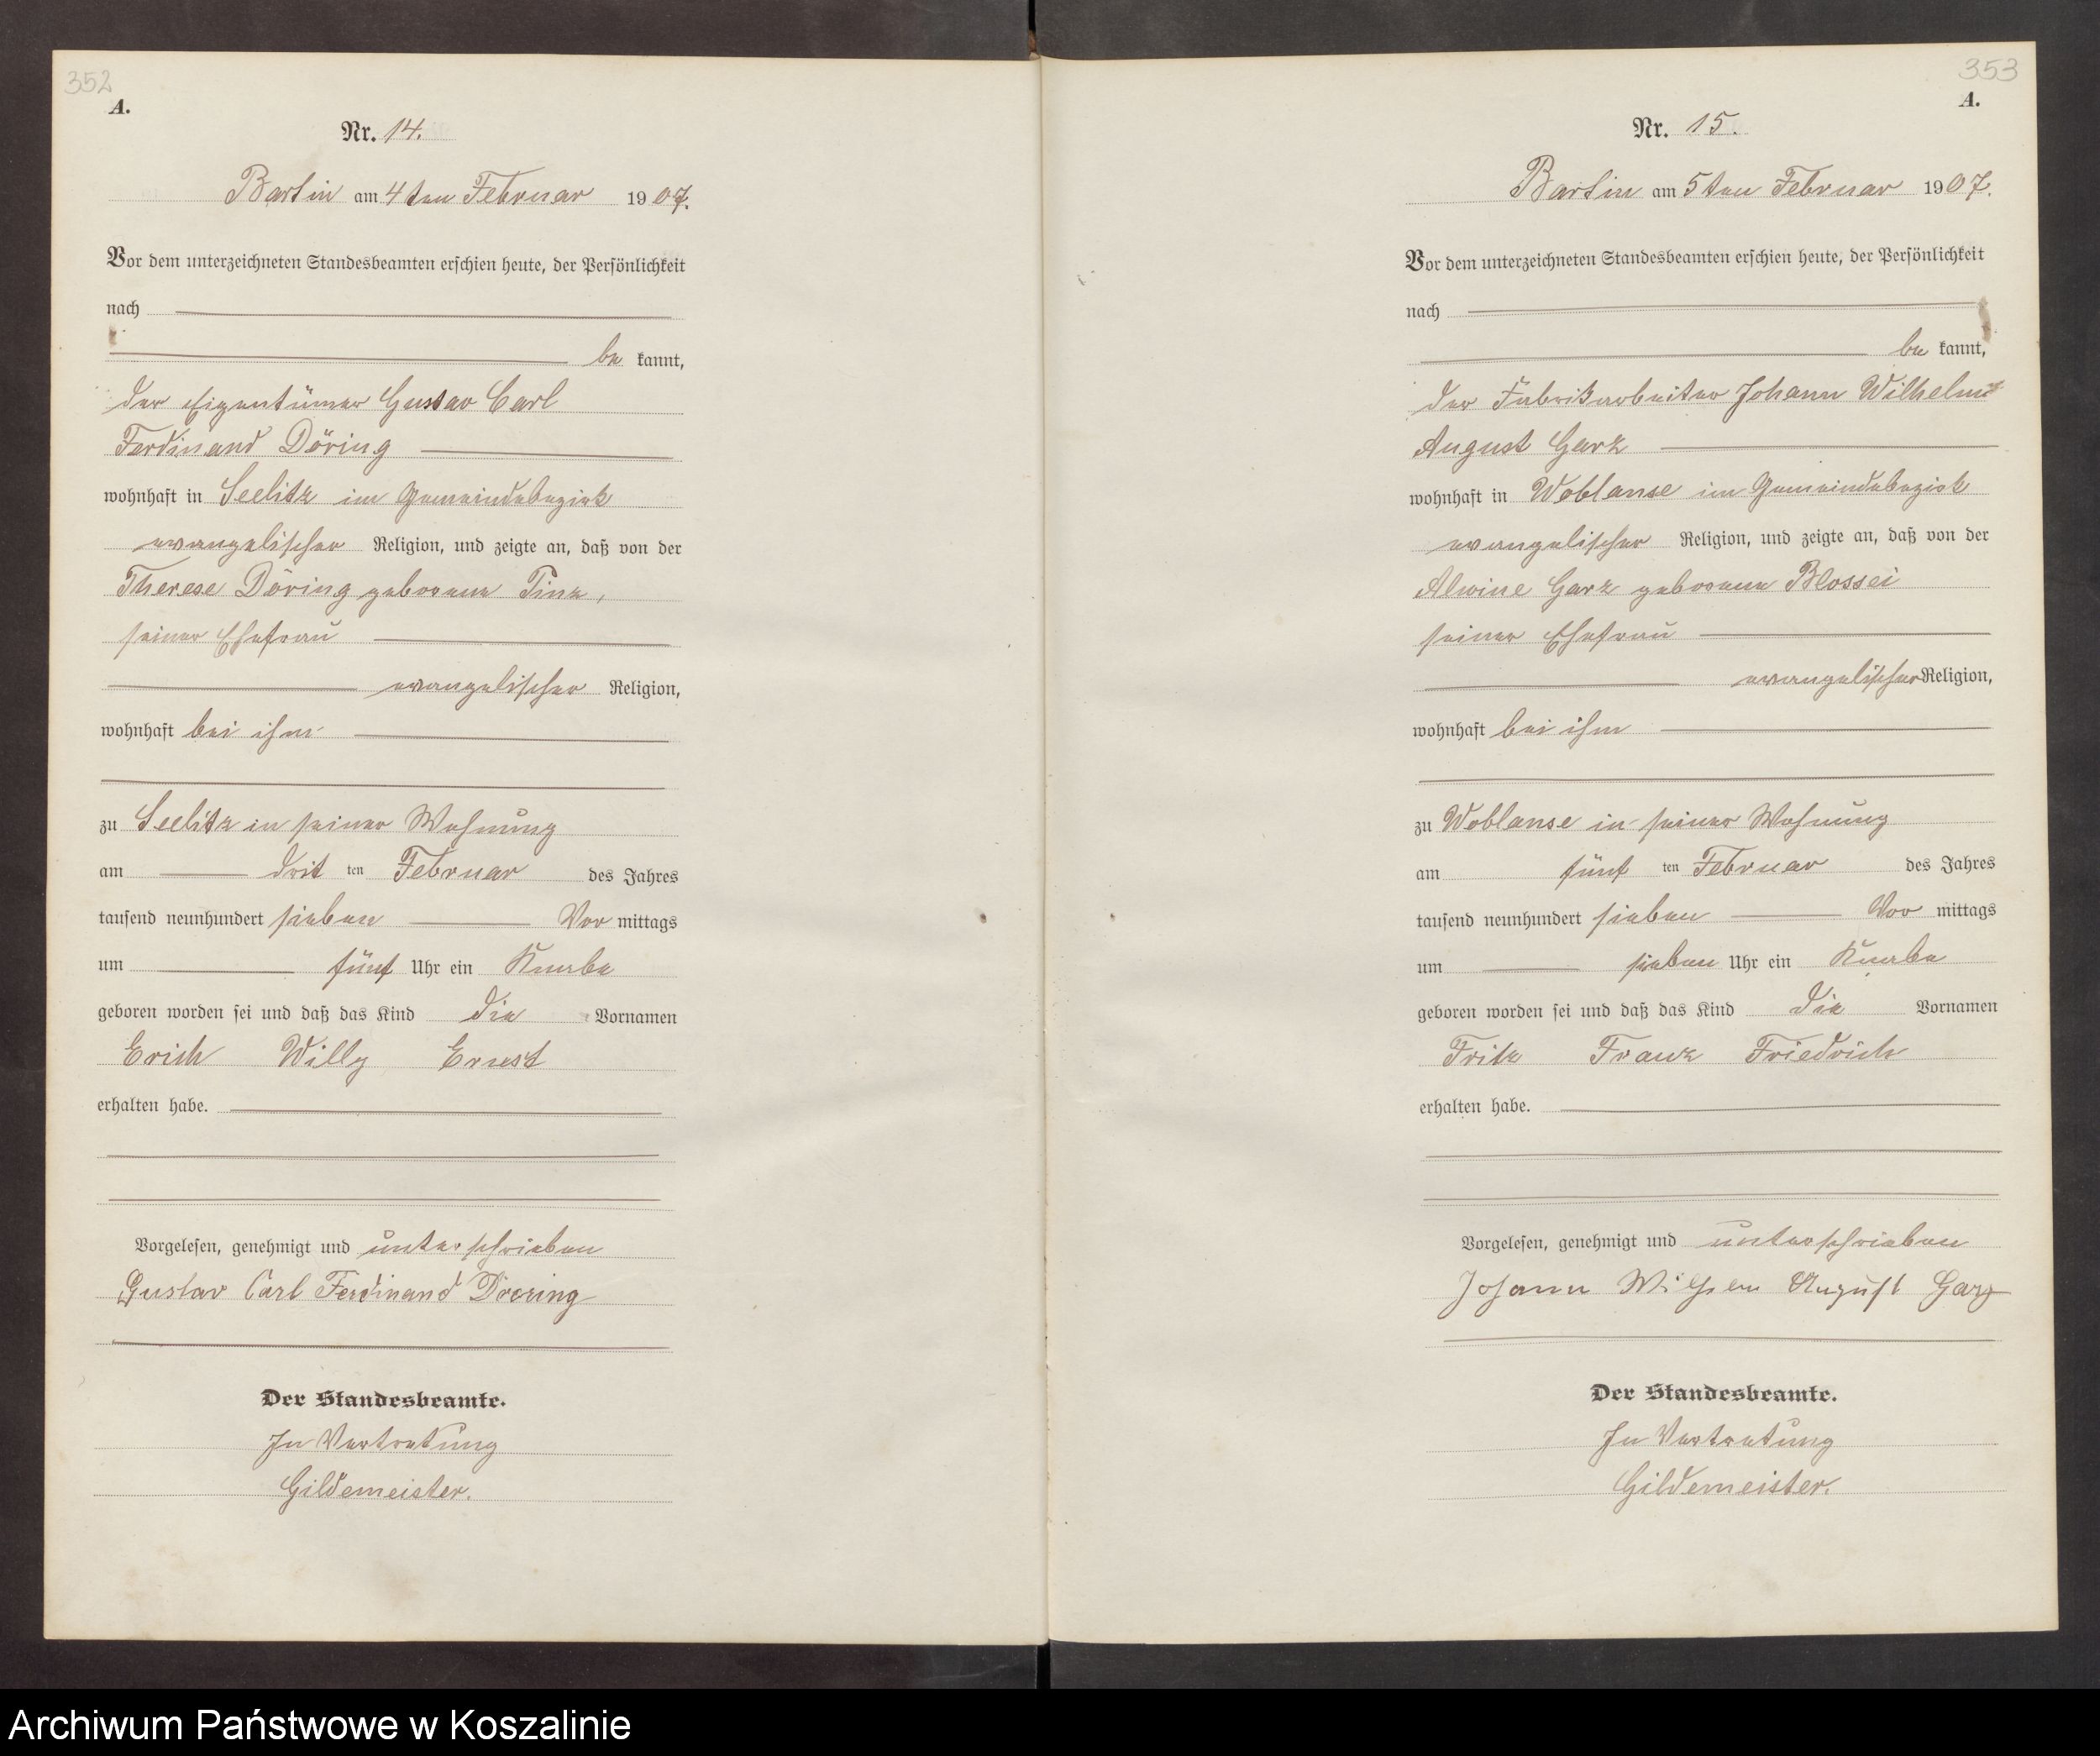 352
A.
Nr. 14.
Bartin am 4ten Februar 1907.
Vor dem unterzeichneten Standesbeamten erschien heute, der Persönlichkeit
nach
be kannt,
der Eigentümer Gustav Carl
Ferdinand Döring
wohnhaft in Seelitz im Gemeindebezirk
evangelischer Religion, und zeigte an, daß von der
Therese Döring geborene Pinz,
seiner Ehefrau
evangelischer Religion,
wohnhaft bei ihm
zu Seelitz in seiner Wohnung
am drit ten Februar des Jahres
tausend neunhundert sieben Vor mittags
um fünf Uhr ein Knabe
geboren worden sei und daß das Kind die Vornamen
Erich Willy Ernst
erhalten habe.
Vorgelesen, genehmigt und unterschrieben
Gustav Carl Ferdinand Doering
Der Standesbeamte.
In Vertretung
Gildemeister.
353
A.
Nr. 15.
Bartin am 5ten Februar 1907.
Vor dem unterzeichneten Standesbeamten erschien heute, der Persönlichkeit
nach
be kannt,
der Fabrikarbeiter Johann Wilhelm
August Garz
wohnhaft in Woblanse im Gemeindebezirk
evangelischer Religion, und zeigte an, daß von der
Alwine Garz geborene Blossei
seiner Ehefrau
evangelischer Religion,
wohnhaft bei ihm
zu Woblanse in seiner Wohnung
am fünf ten Februar des Jahres
tausend neunhundert sieben Vor mittags
um sieben Uhr ein Knabe
geboren worden sei und daß das Kind die Vornamen
Fritz Franz Friedrich
erhalten habe.
Vorgelesen, genehmigt und unterschrieben
Johann Wilhelm August Garz
Der Standesbeamte.
In Vertretung
Gildemeister.
Archiwum Państwowe w Koszalinie